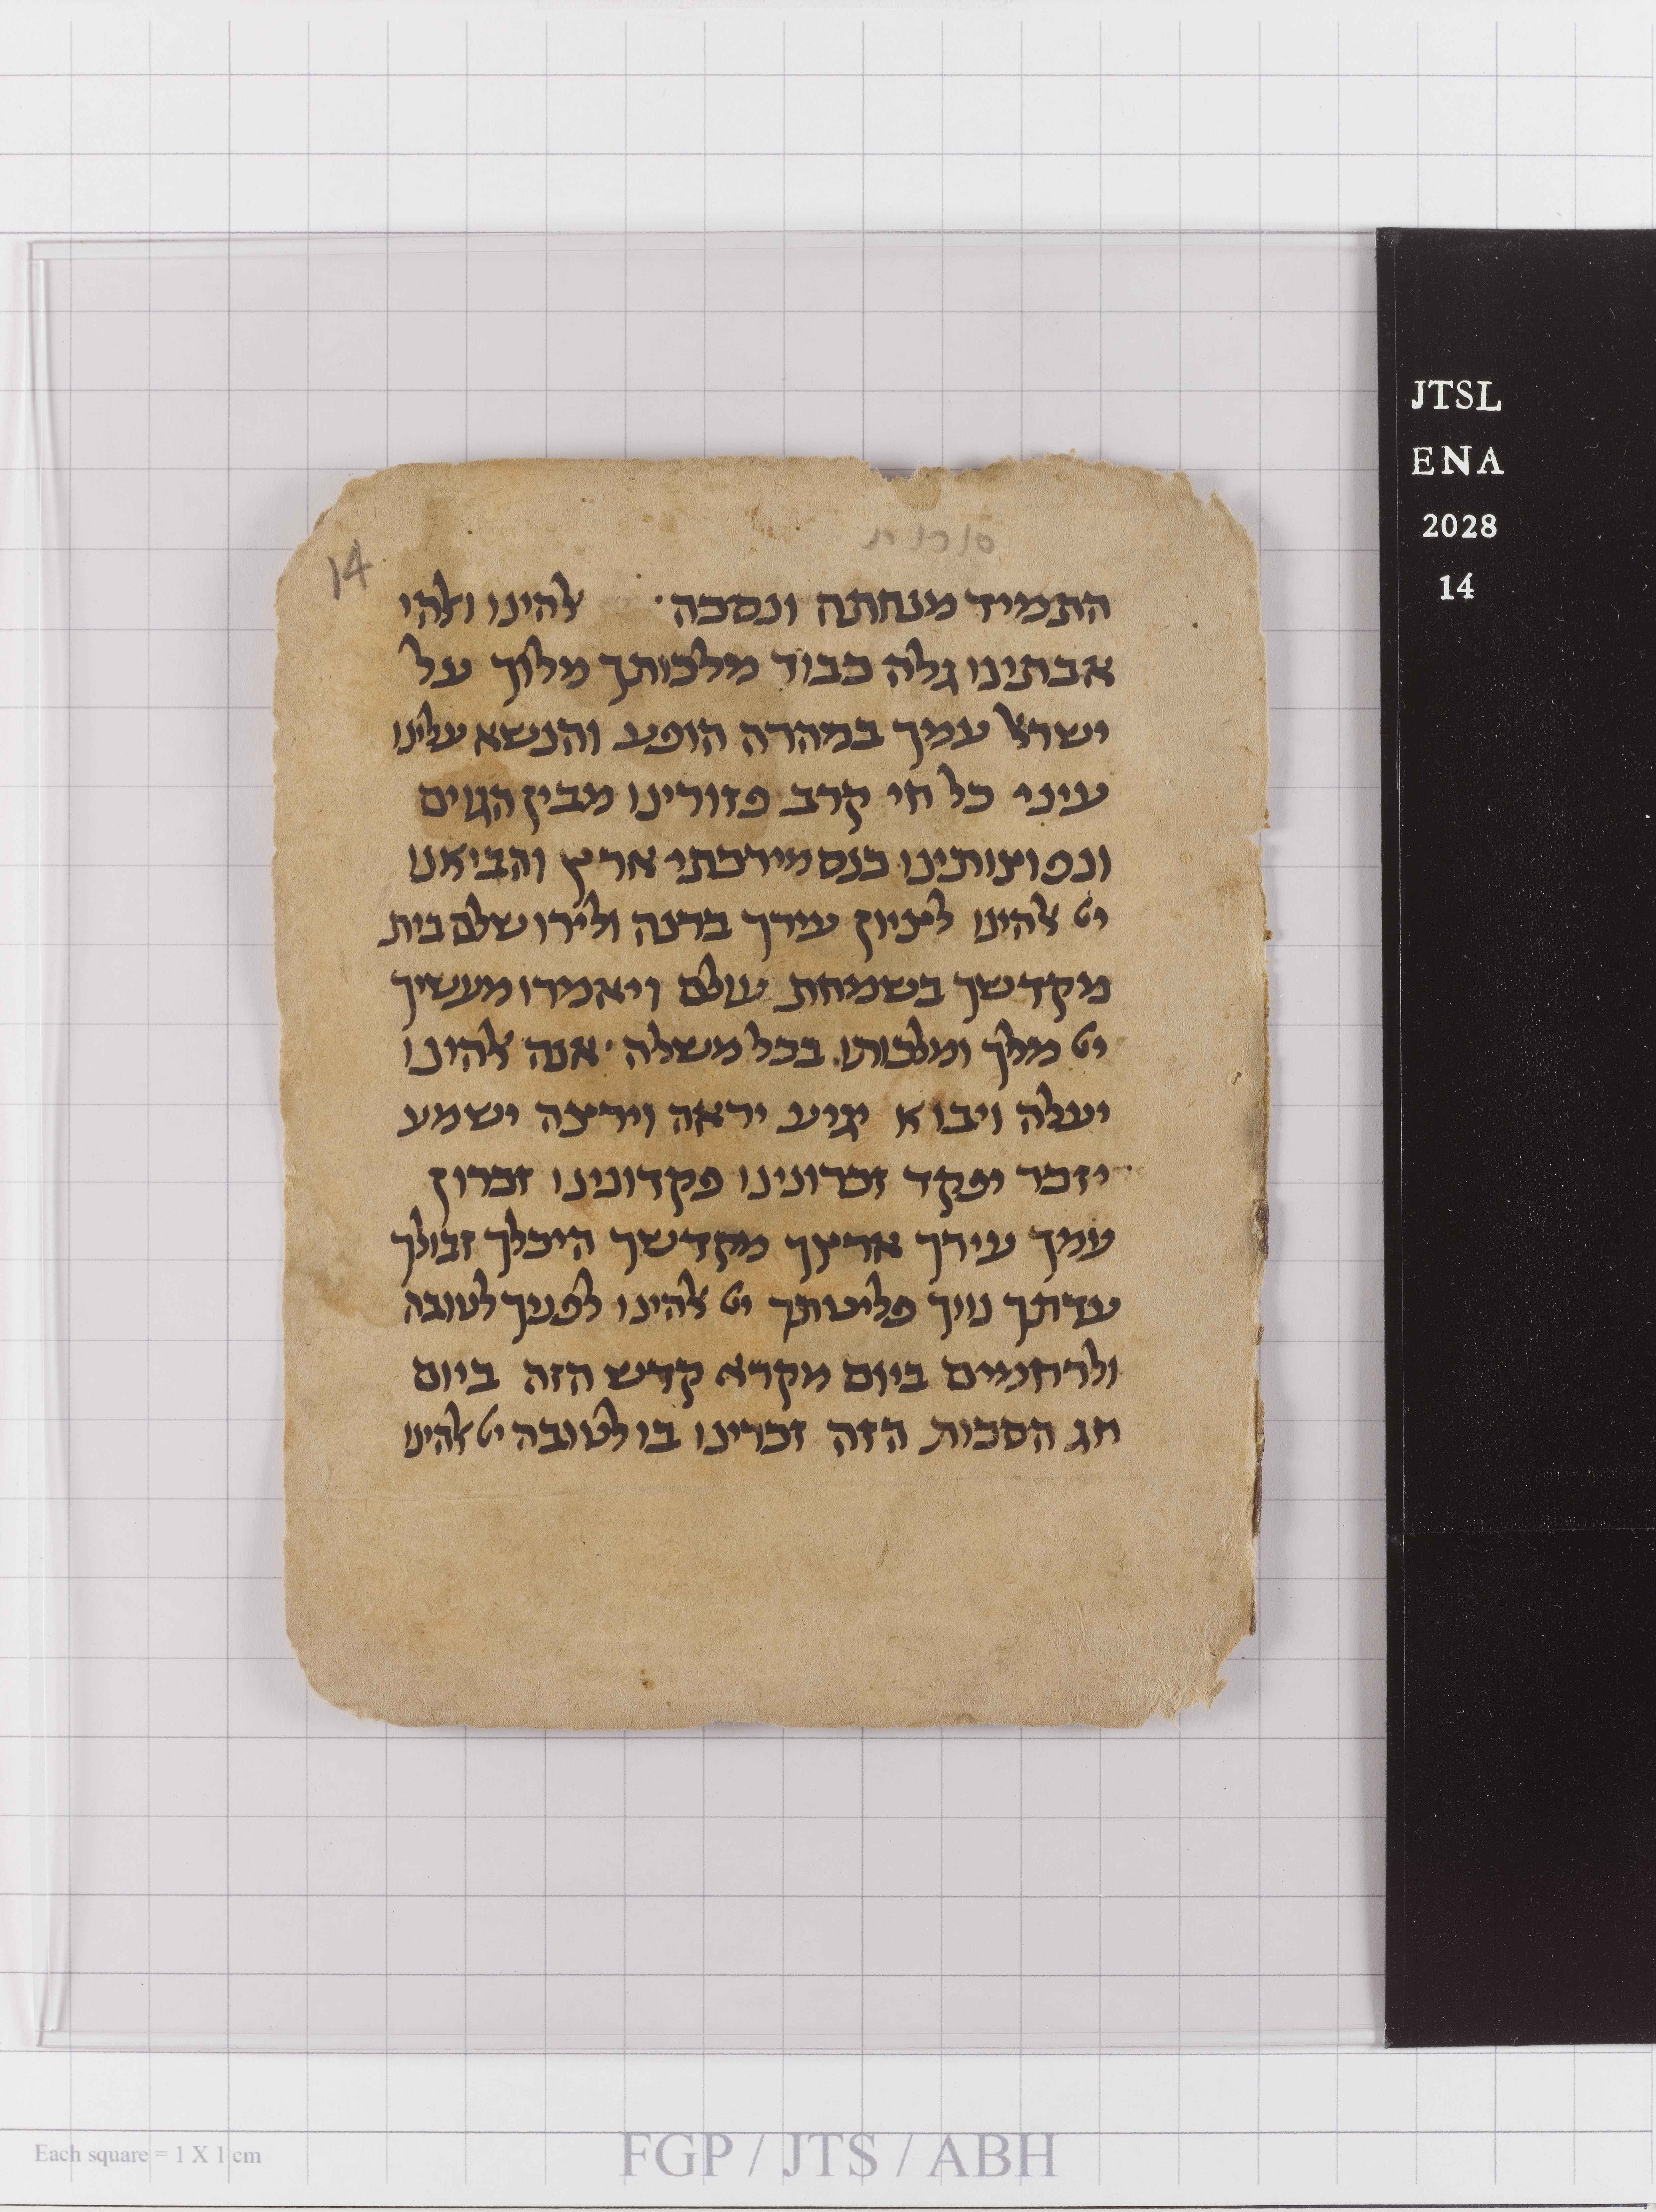 סוכות
14
התמיד מנחתה ונסכה· אלהינו ואלהי
אבתינו גלה כבוד מלכותך מלוך על
ישראל עמך במהרה הופע והנשא עלינו
עיני כל חי קרב פזורינו מבין הגוים
ונפוצותינו כנס מירכתי ארץ והביאנו
ייי אלהינו לציון עירך ברנה ולירושלם בית
מקדשך בשמחת עולם ויאמרו מעשיך
ייי מלך ומלכותו בכל משלה· אנה אלהינו
יעלה ויבוא יגיע יראה וירצה ישמע
יזכר יפקד זכרונינו פקדונינו זכרון
עמך עירך ארצך מקדשך היכלך זבולך
עדתך נויך פליטתך ייי אלהינו לפניך לטובה
ולרחמים ביום מקרא קדש הזה ביום
חג הסכות הזה זכרינו בו לטובה ייי אלהינו
JTSL
ENA
2028
14
Each square = 1 X 1 cm
FGP / JTS / ABH